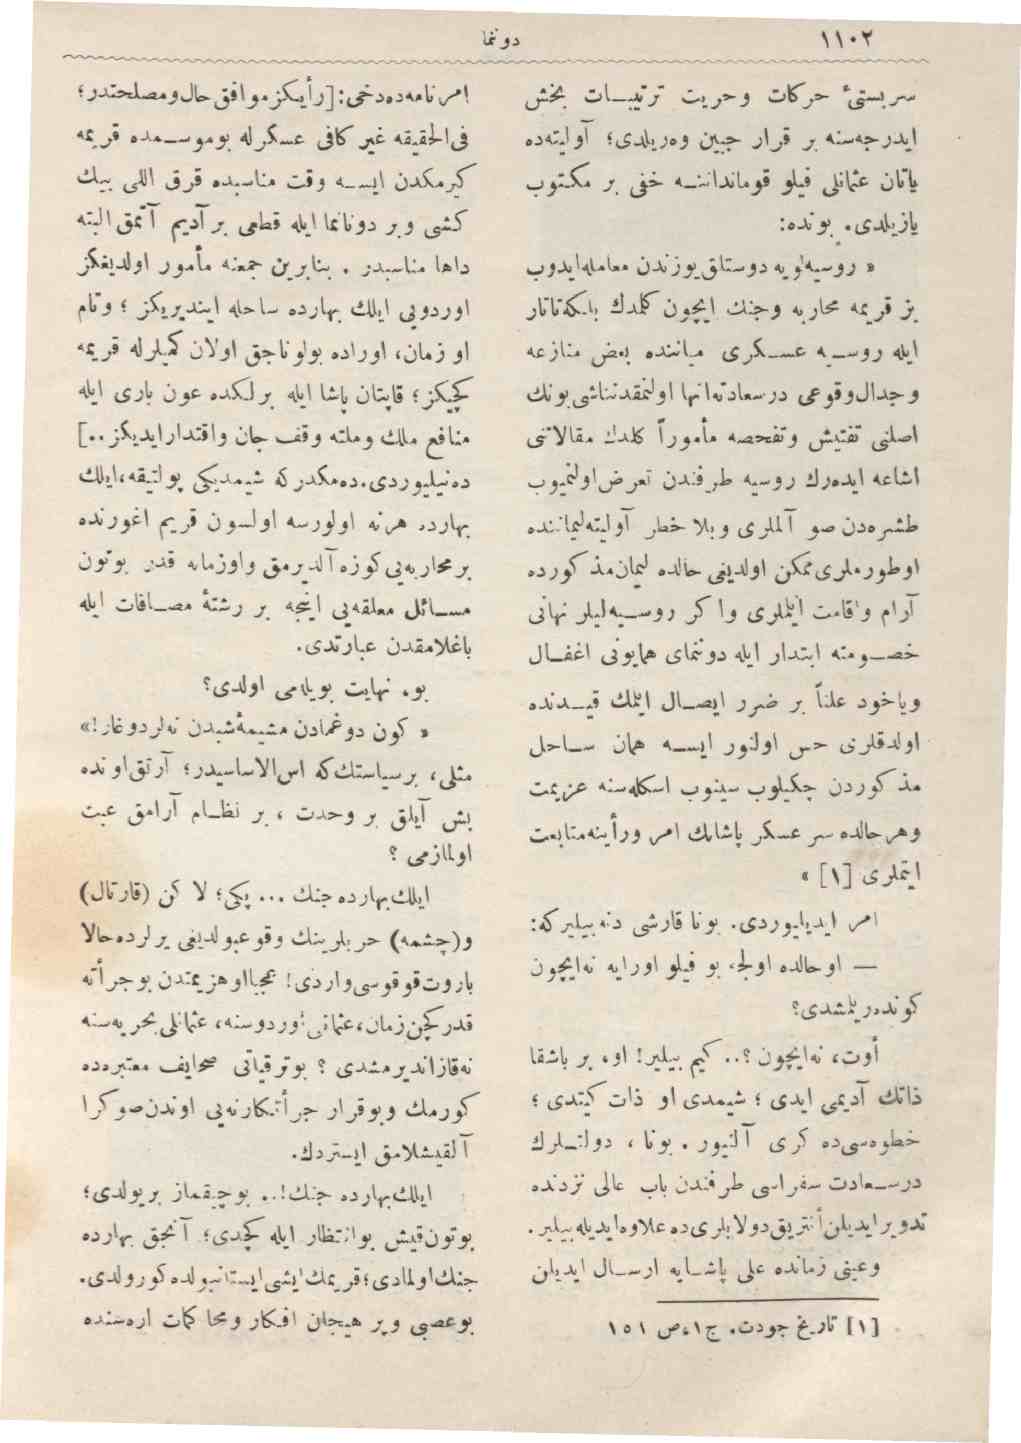 ١١٠٢
دوننما
سربستئ حركات وحريت ترتيبـات بخش
ايدرجه‌سنه بر قرار جبين ويريلدى؛ آوليته‌ده
ياتان عثمانلى فيلو قومانداننـه خفى بر مكتوب
يازيلدى. بونده:
« روسيه‌لويه دوستلق يوزندن معامله‌ايدوب
بز قريمه محاربه وجنك ايچون كلمدك بلكه‌تاتار
ايله روسـيه عسـكرى ميانده بعض منازعه
وجدال‌وقوعى درسعادته‌انها اولنمقدنناشى‌بونك
اصلنى تفتيش وتفحصه مأموراً كلدك مقالاتنى
اشاعه ايده‌رك روسيه طرفندن تعرض‌اولنميوب
طشره‌دن صو آلملرى وبلا خطر آوليته‌ليماننده
اوطورملرى‌ممكن اولديغى حالده ليمان‌مذكورده
آرام واقامت ايتملرى واكر روسـيه‌ليلر نهانى
خصـومته ابتدار ايله دوننماى همايونى اغفـال
وياخود علناً بر ضرر ايصـال ايتمك قيـدنده
اولدقلرى حس اولنور ايسـه همان سـاحل
مذكوردن چكيلوب سينوب اسكله‌سنه عزيمت
وهرحالده سر عسكر پاشانك امر ورأينه‌متابعت
ايتملرى [١] »
امر ايديليوردى. بونا قارشى دنه‌بيليركه:
— اوحالده اولجه، بو فيلو اورايه نه‌ايچون
كوندريلمشدى؟
أوت، نه‌ايچون؟.. كيم بيلير! او، بر باشقا
ذاتك آديمى ايدى ؛ شيمدى او ذات كيتدى ؛
خطوه‌سى‌ده كرى آلنيور . بونا ، دولتـلرك
درسـعادت سفراسى طرفندن باب عالى نزدنده
تدوير ايديلن أنتريق‌دولابلرى‌ده‌علاوه‌ايديله‌بيلير.
وعينى زمانده على پاشـايه ارسـال ايديلن
[١] تاريخ جودت. ج١،ص ١٥١
امرنامه‌ده‌دخى:[رأيكزموافق‌حال‌ومصلحتدر؛
فى‌الحقيقه غير كافى عسكرله بوموسـمده قريمه
كيرمكدن ايسـه وقت مناسبده قرق اللى بيك
كشى وبر دونانما ايله قطعى بر آديم آتمق البته
داها مناسبدر . بنابرين جمعنه مأمور اولديغكز
اوردويى ايلك بهارده ساحله اينديريكز ؛ وتام
او زمان، اوراده بولوناجق اولان كميلرله قريمه
كچيكز؛ قاپتان پاشا ايله برلكده عون بارى ايله
منافع ملك وملته وقف جان واقتدارايديكز..]
ده‌نيليوردى.ده‌مكدركه شيمديكى پولتيقه،ايلك
بهارده هرنه اولورسه اولسون قريم اغورنده
برمحاربه‌يى‌كوزه آلديرمق واوزمانه قدر بوتون
مسـائل معلقه‌يى اينجه بر رشتهٔ مصـافات ايله
باغلامقدن عبارتدى.
بو، نهايت بويله‌مى اولدى؟
« كون دوغمادن مشيمهٔ‌شبدن نه‌لردوغار!»
مثلى، برسياستك‌كه اس‌الاساسيدر؛ آرتق‌اونده
بش آيلق بر وحدت ، بر نظـام آرامق عبث
اولمازمى ؟
ايلك‌بهارده جنك ... پكى؛ لا كن (قارتال)
و(چشمه) حربلرينك وقوعبولديغى يرلرده‌حالا
باروت‌قوقوسى‌واردى! عجبااوهزيمتدن بوجرأته
قدركچن‌زمان،عثمانلى‌اوردوسنه، عثمانلى‌بحريه‌سنه
نه‌قازانديرمشدى ؟ بوترقياتى صحايف معتبره‌ده
كورمك وبوقرار جرأتكارنه‌يى اوندن‌صوكرا
آلقيشلامق ايستردك.
ايلك‌بهارده جنك!.. بوچيقماز بريولدى؛
بوتون‌قيش بوانتظار ايله كچدى؛ آنجق بهارده
جنك‌اولمادى؛قريمك‌ايشى‌ايستانبولده‌كورولدى.
بوعصبى وپر هيجان افكار ومحاكمات اره‌سنده